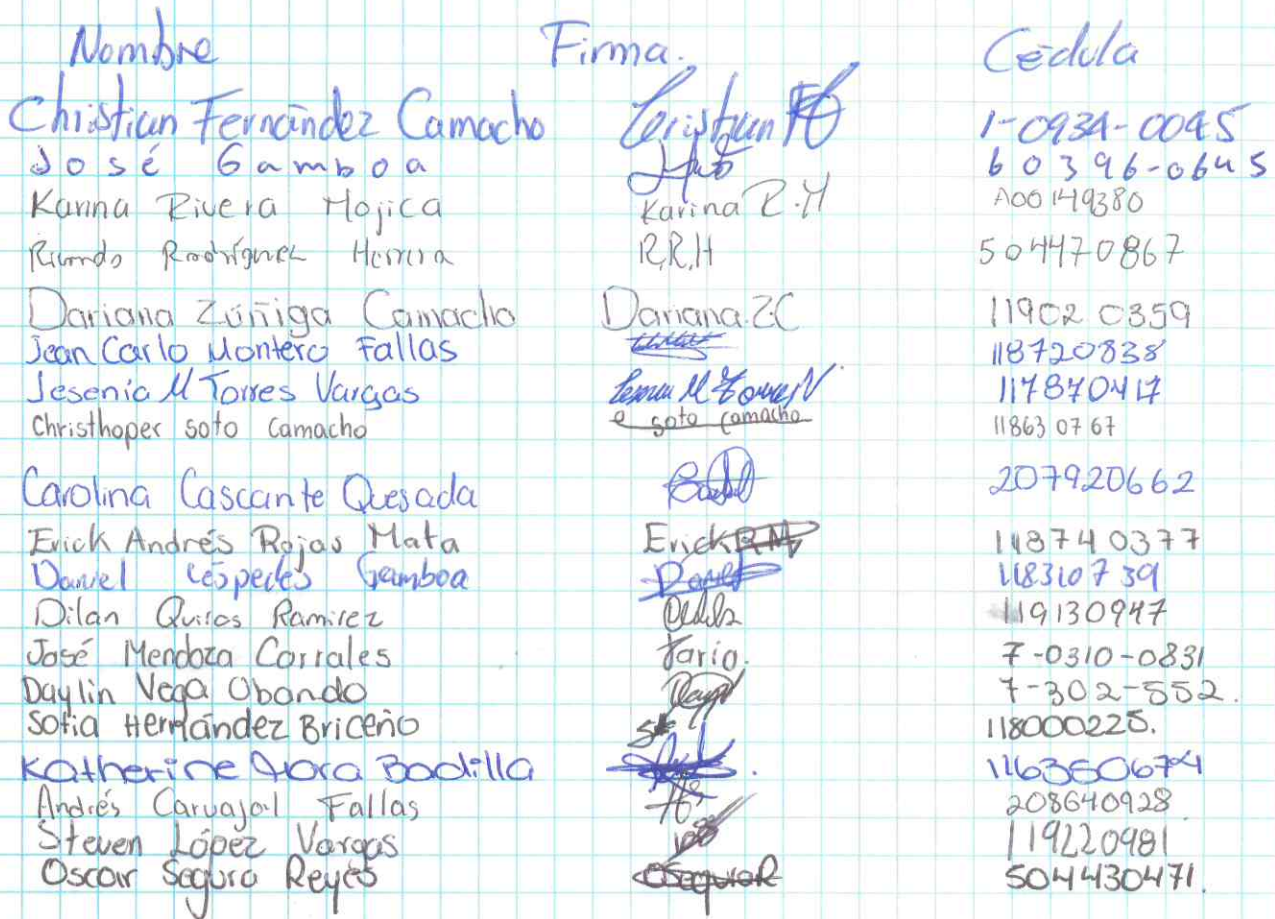 Nombre Firma. Cédula
Christian Fernández Camacho Christian 1-0934-0045
José Gamboa 60396-0645
Karina Rivera Mojica Karina R.M A00149380
Rodríguez Herrera R.R.H 504470867
Dariana Zúñiga Camacho Dariana.ZC 119020359
Jean Carlo Montero Fallas 118720838
Jesenia M Torres Vargas M Torres V 117870417
Christhoper soto camacho c soto camacho 118630767
Carolina Cascante Quesada 207920662
Erick Andrés Rojas Mata Erick RM 118740377
Daniel Céspedes Gamboa Daniel 118310739
Dilan Quiros Ramirez 119130947
José Mendoza Corrales 7-0310-0831
Daylin Vega Obando 7-302-552.
Sofia Hernández Briceño 118000225.
Katherine Mora Badilla 116350674
Andrés Carvajal Fallas 208640928
Steven López Vargas 119220981
Oscar Segura Reyes OseguraR 504430471.